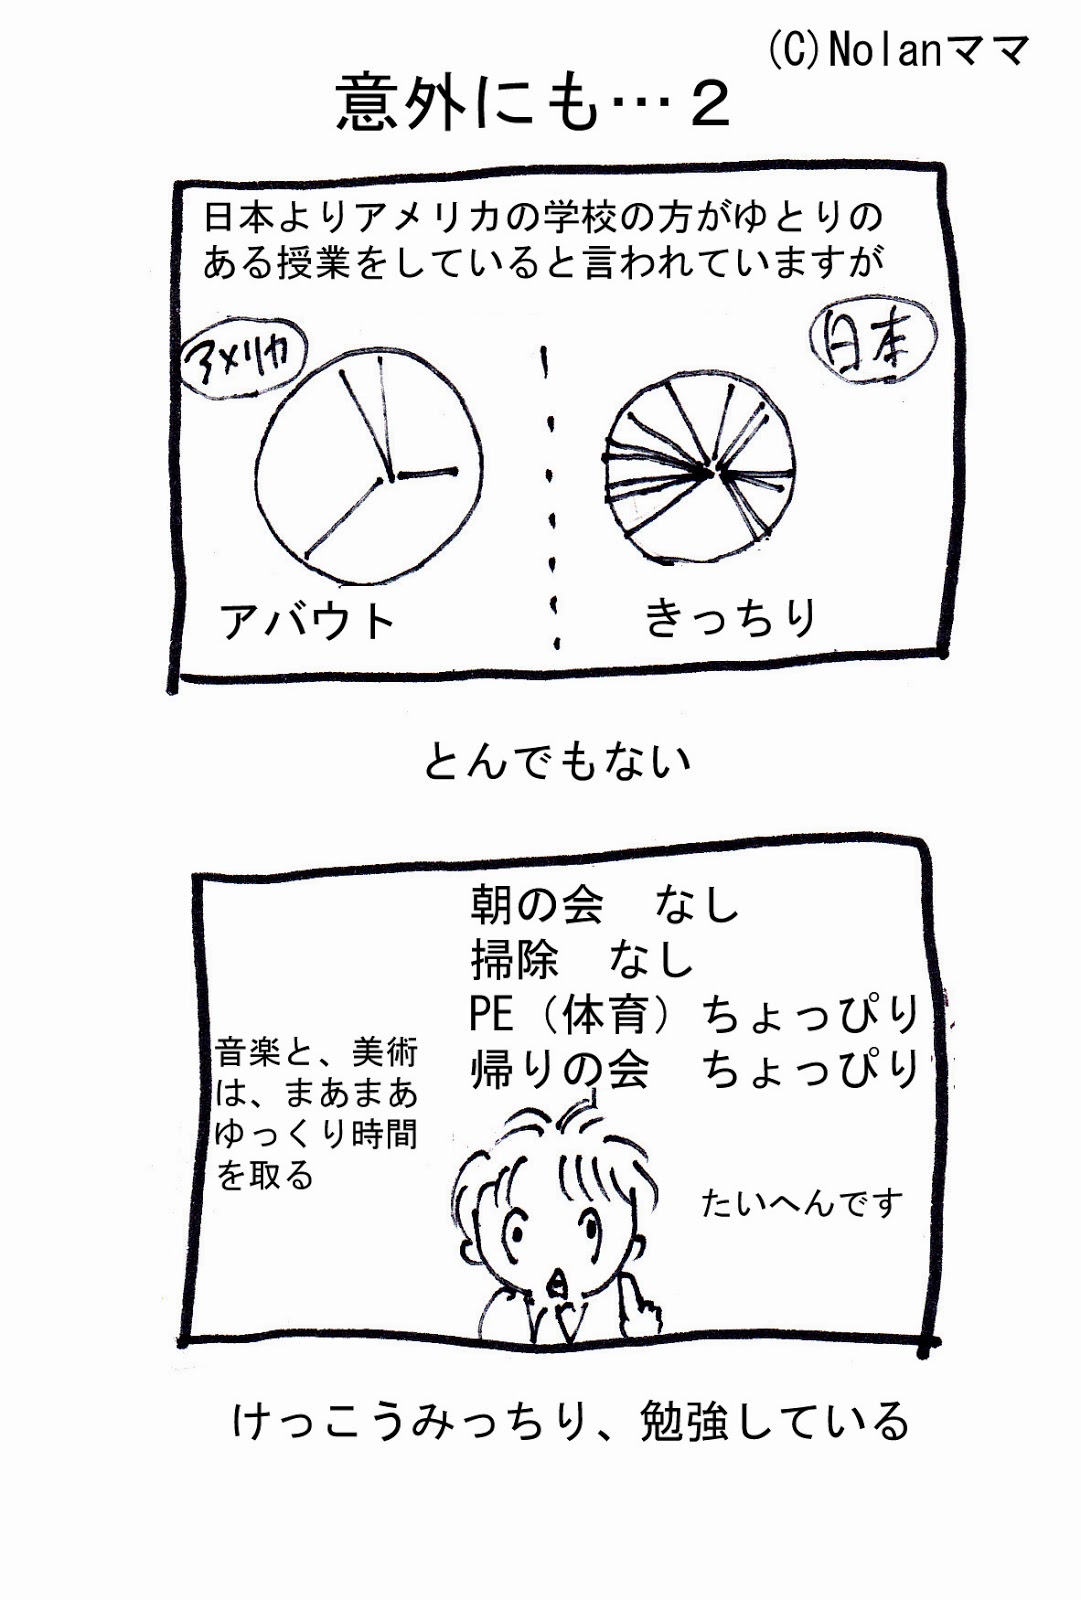 (C)Nolanママ
意外にも…２
日本よりアメリカの学校の方がゆとりの
ある授業をしていると言われていますが
アメリカ
日本
アバウト
きっちり
とんでもない
朝の会　なし
掃除　なし
PE（体育）ちょっぴり
帰りの会　ちょっぴり
音楽と、美術
は、まあまあ
ゆっくり時間
を取る
たいへんです
けっこうみっちり、勉強している